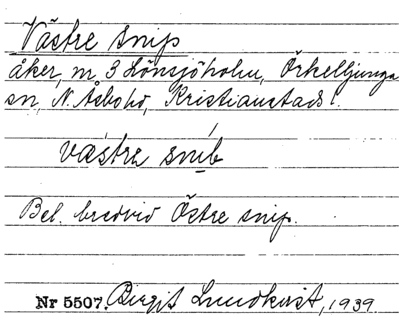 Västre snip
åker, m 3 Lönsjöholm, Örkelljunga
sn, N. Åsbohd, Kristianstads l.
västra sníb
Bel. bredvid Östre snip.
Nr 5507. Birgit Lundkvist, 1939